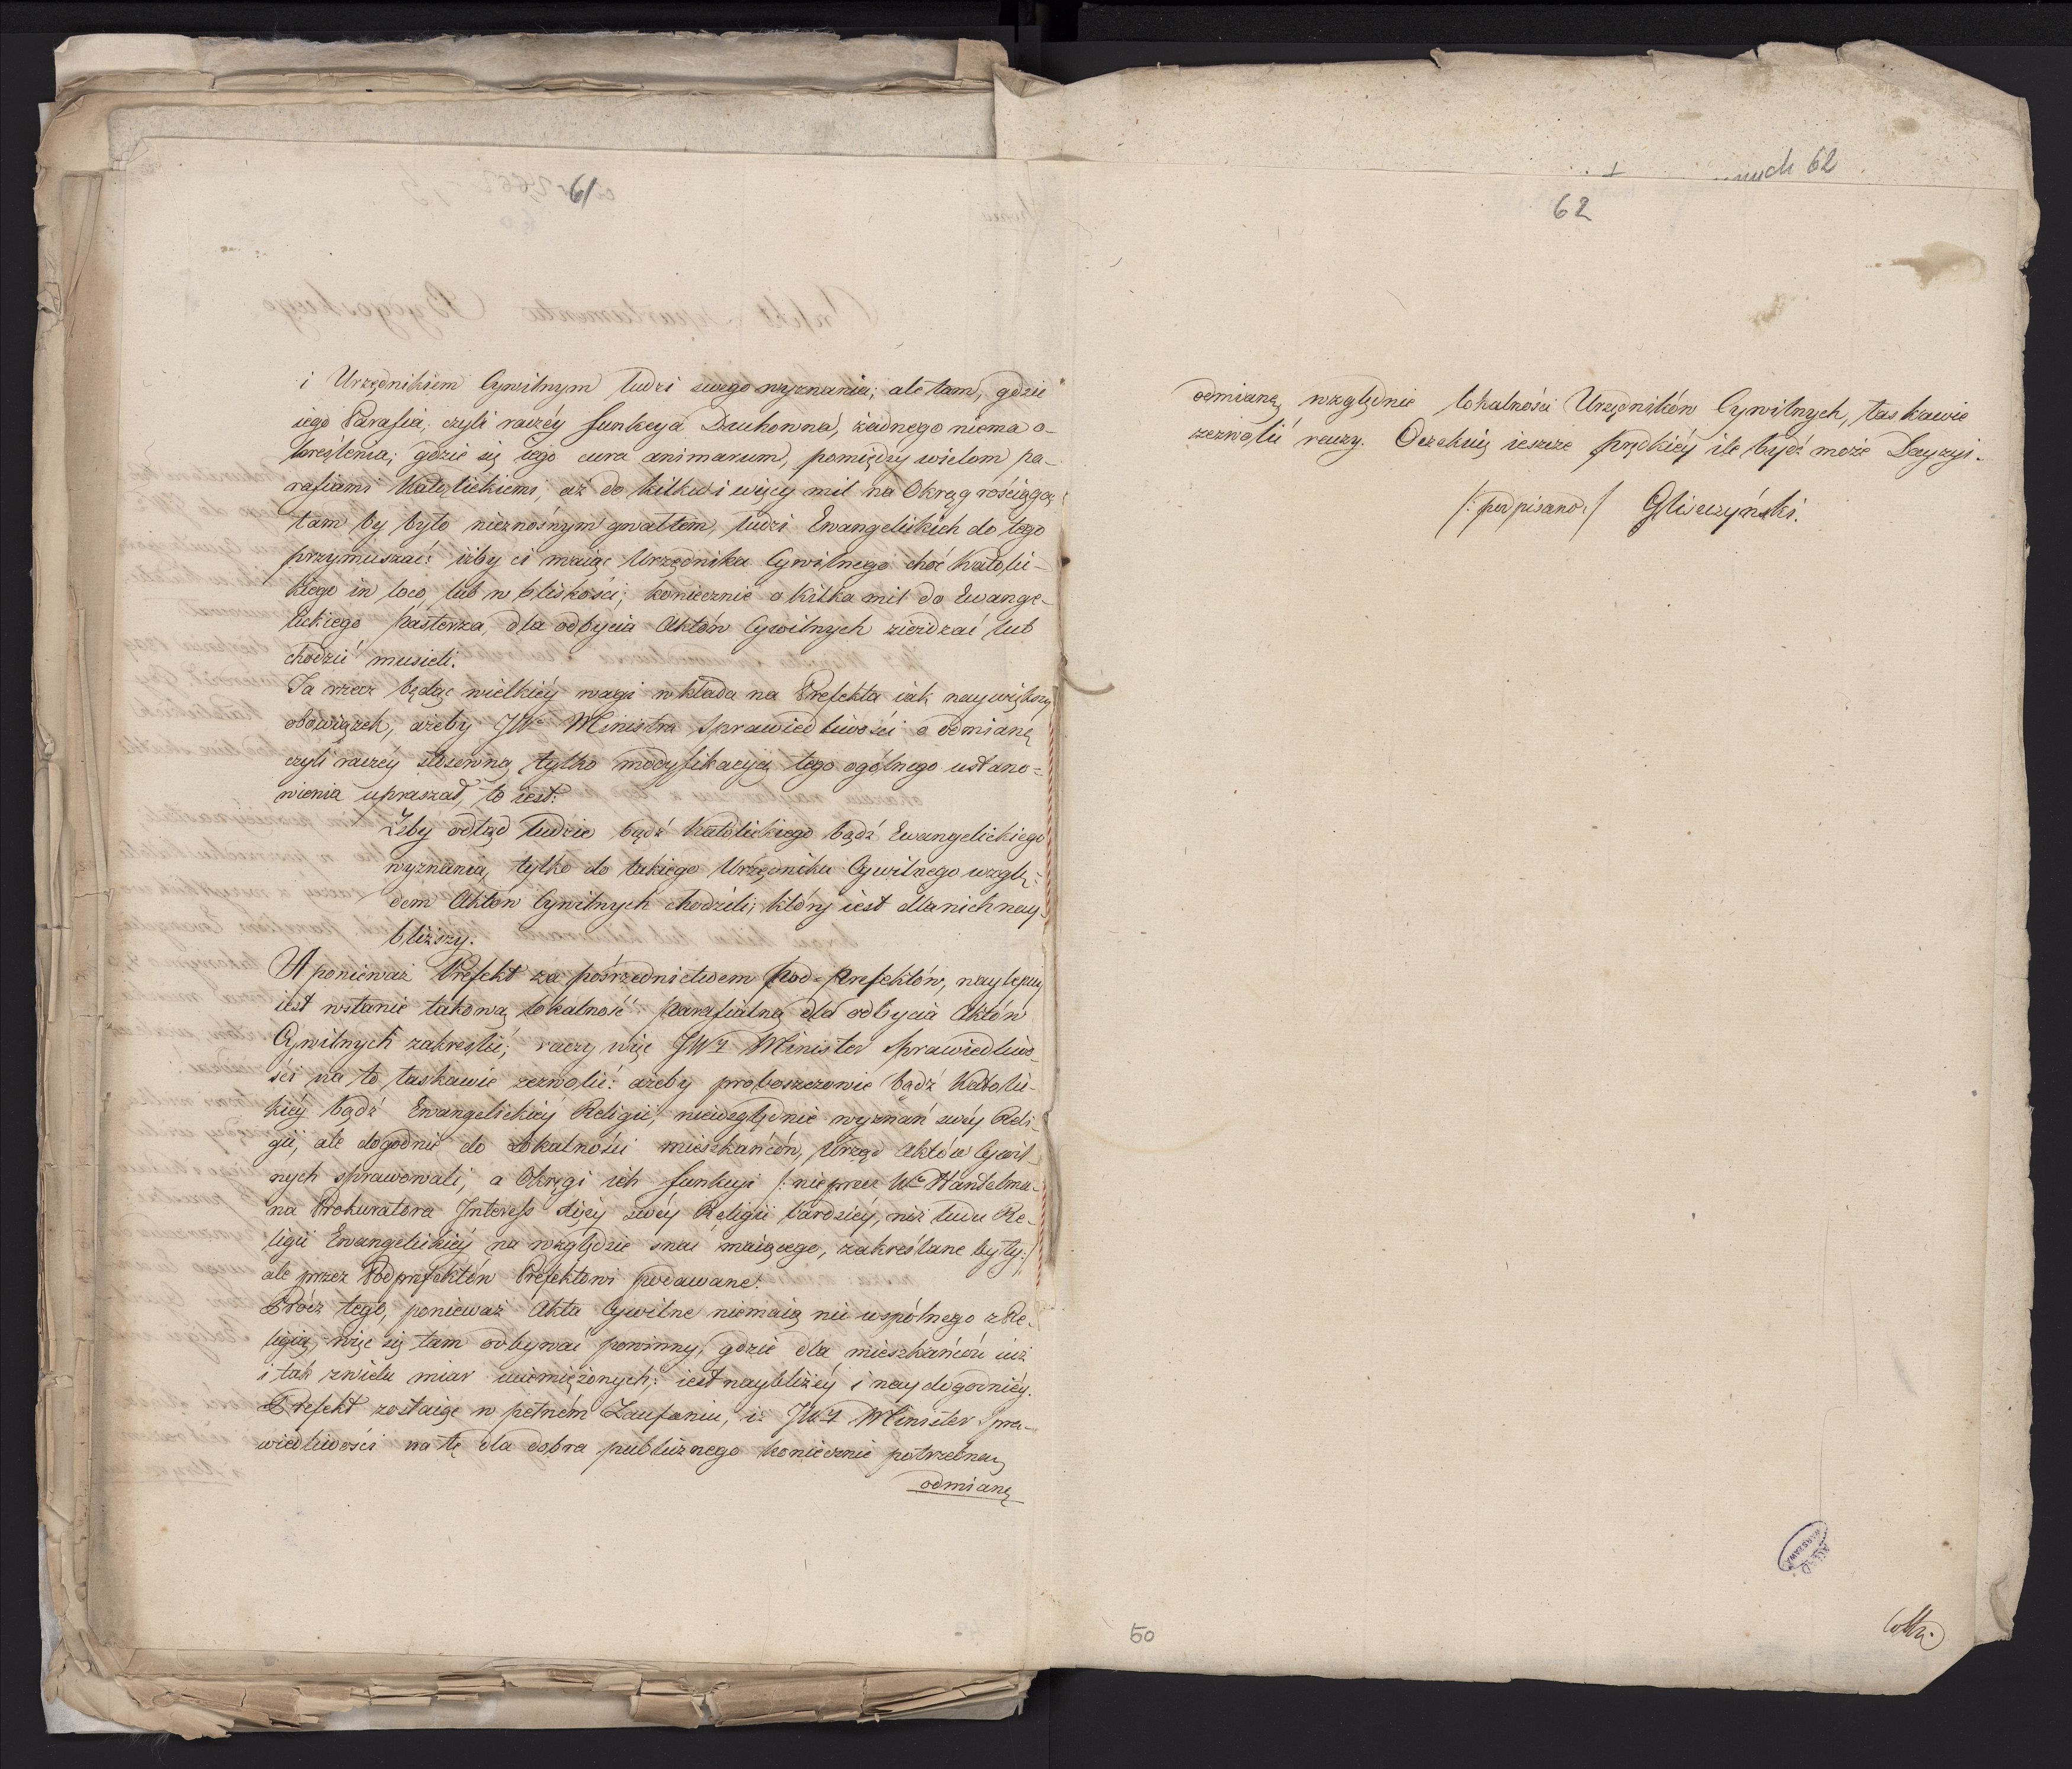 61
i Urzędnikiem Cywilnym ludzi swego wyznania; ale tam, gdzie
iego Parafia, czyli raczéy funkcya Duchowna, żadnego niema o-
kreślenia; gdzie się iego cura animarum, pomiędzy wielom pa-
rafiami Katolickiemi, aż do kilku i więcy mil na Okrąg rościąga;
tam by było nieznośnym gwałtem, ludzi Ewangelickich do tego
przymuszać: iżby ci maiąc Urzędnika Cywilnego choć Katolic-
kiego in loco, lub w bliskości; koniecznie o kilka mil do Ewange-
lickiego Pasterza, dla odbycia Aktów Cywilnych zieżdzać lub
chodzić musieli.
Ta rzecz będąc wielkiéy wagi wkłada na Prefekta iak naywiększy
obowiązek, ażeby JWo Ministra Sprawiedliwości o odmianę
czyli raczéy stosowną tylko modyfikacyą tego ogólnego ustano-
wienia upraszał, to iest:
Iżby odtąd ludzie bądź Katolickiego bądź Ewangelickiego
wyznania, tylko do takiego Urzędnika Cywilnego wzglę-
dem Aktów Cywilnych chodzili, który iest dla nich nay-
bliższy.
A ponieważ Prefekt za pośrzednictwem Pod-Prefektów, naylepiey
iest wstanie takową lokalność Parafialną dla odbycia Aktów
Cywilnych zakreślić; raczy więc JWy Minister Sprawiedliwo-
ści na to łaskawie zezwolić: ażeby proboszczowie bądź Katolic-
kiéy bądź Ewangelickiéy Religii, niewzględnie wyznań swéy Reli-
gii, ale dogodnie do Lokalności mieszkańców, Urząd Aktów Cywil-
nych sprawowali, a Okręgi ich funkcyi /: nie przez We Handelma-
na Prokuratora Interess téży swéy Religii bardziéy, niż ludu Re-
ligii Ewangelickiéy na względzie snać maiącego, zakreślane były:/
ale przez Podprefektów Prefektowi podawane.
Prócz tego, ponieważ Akta Cywilne niemaią nic wspólnego z Re-
ligią, więc się tam odbywać powinny, gdzie dla mieszkańców iuż
i tak zwielu miar uciemiężonych; iest naybliżéy i naydogodniéy.
Prefekt zostaiąc w pełném Zaufaniu, iż JWy Minister Spra-
wiedliwości na tę dla dobra publicznego koniecznie potrzebną
odmianę
62
62
odmianę względnie lokalności Urzędników Cywilnych, łaskawie
zezwolić raczy. Oczekuię ieszcze prędkiéy ile bydź może Decyzyi.
/: podpisano :/ Gliszczyński.
50